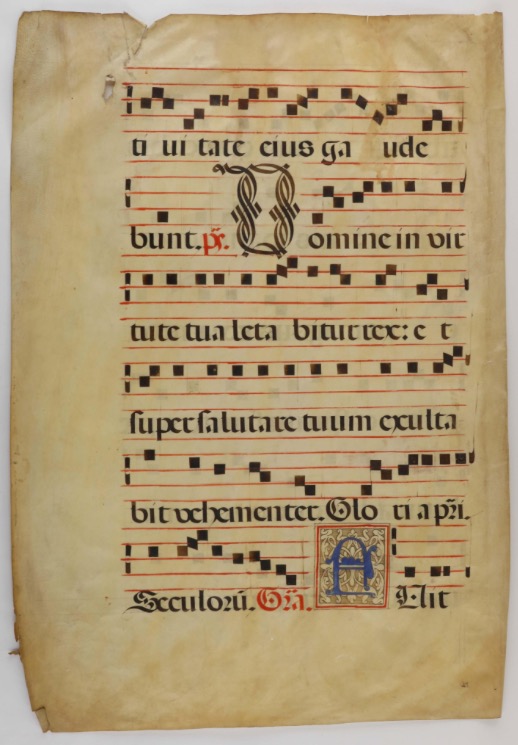 ti ui tate eius ga ude
bunt. ps̃. Domine in vir
tute tua leta bitur rex: e t
super salutare tuum exulta
bit vehementer. Glo ri a pr̃i.
Seculorũ. Gr̃a. A